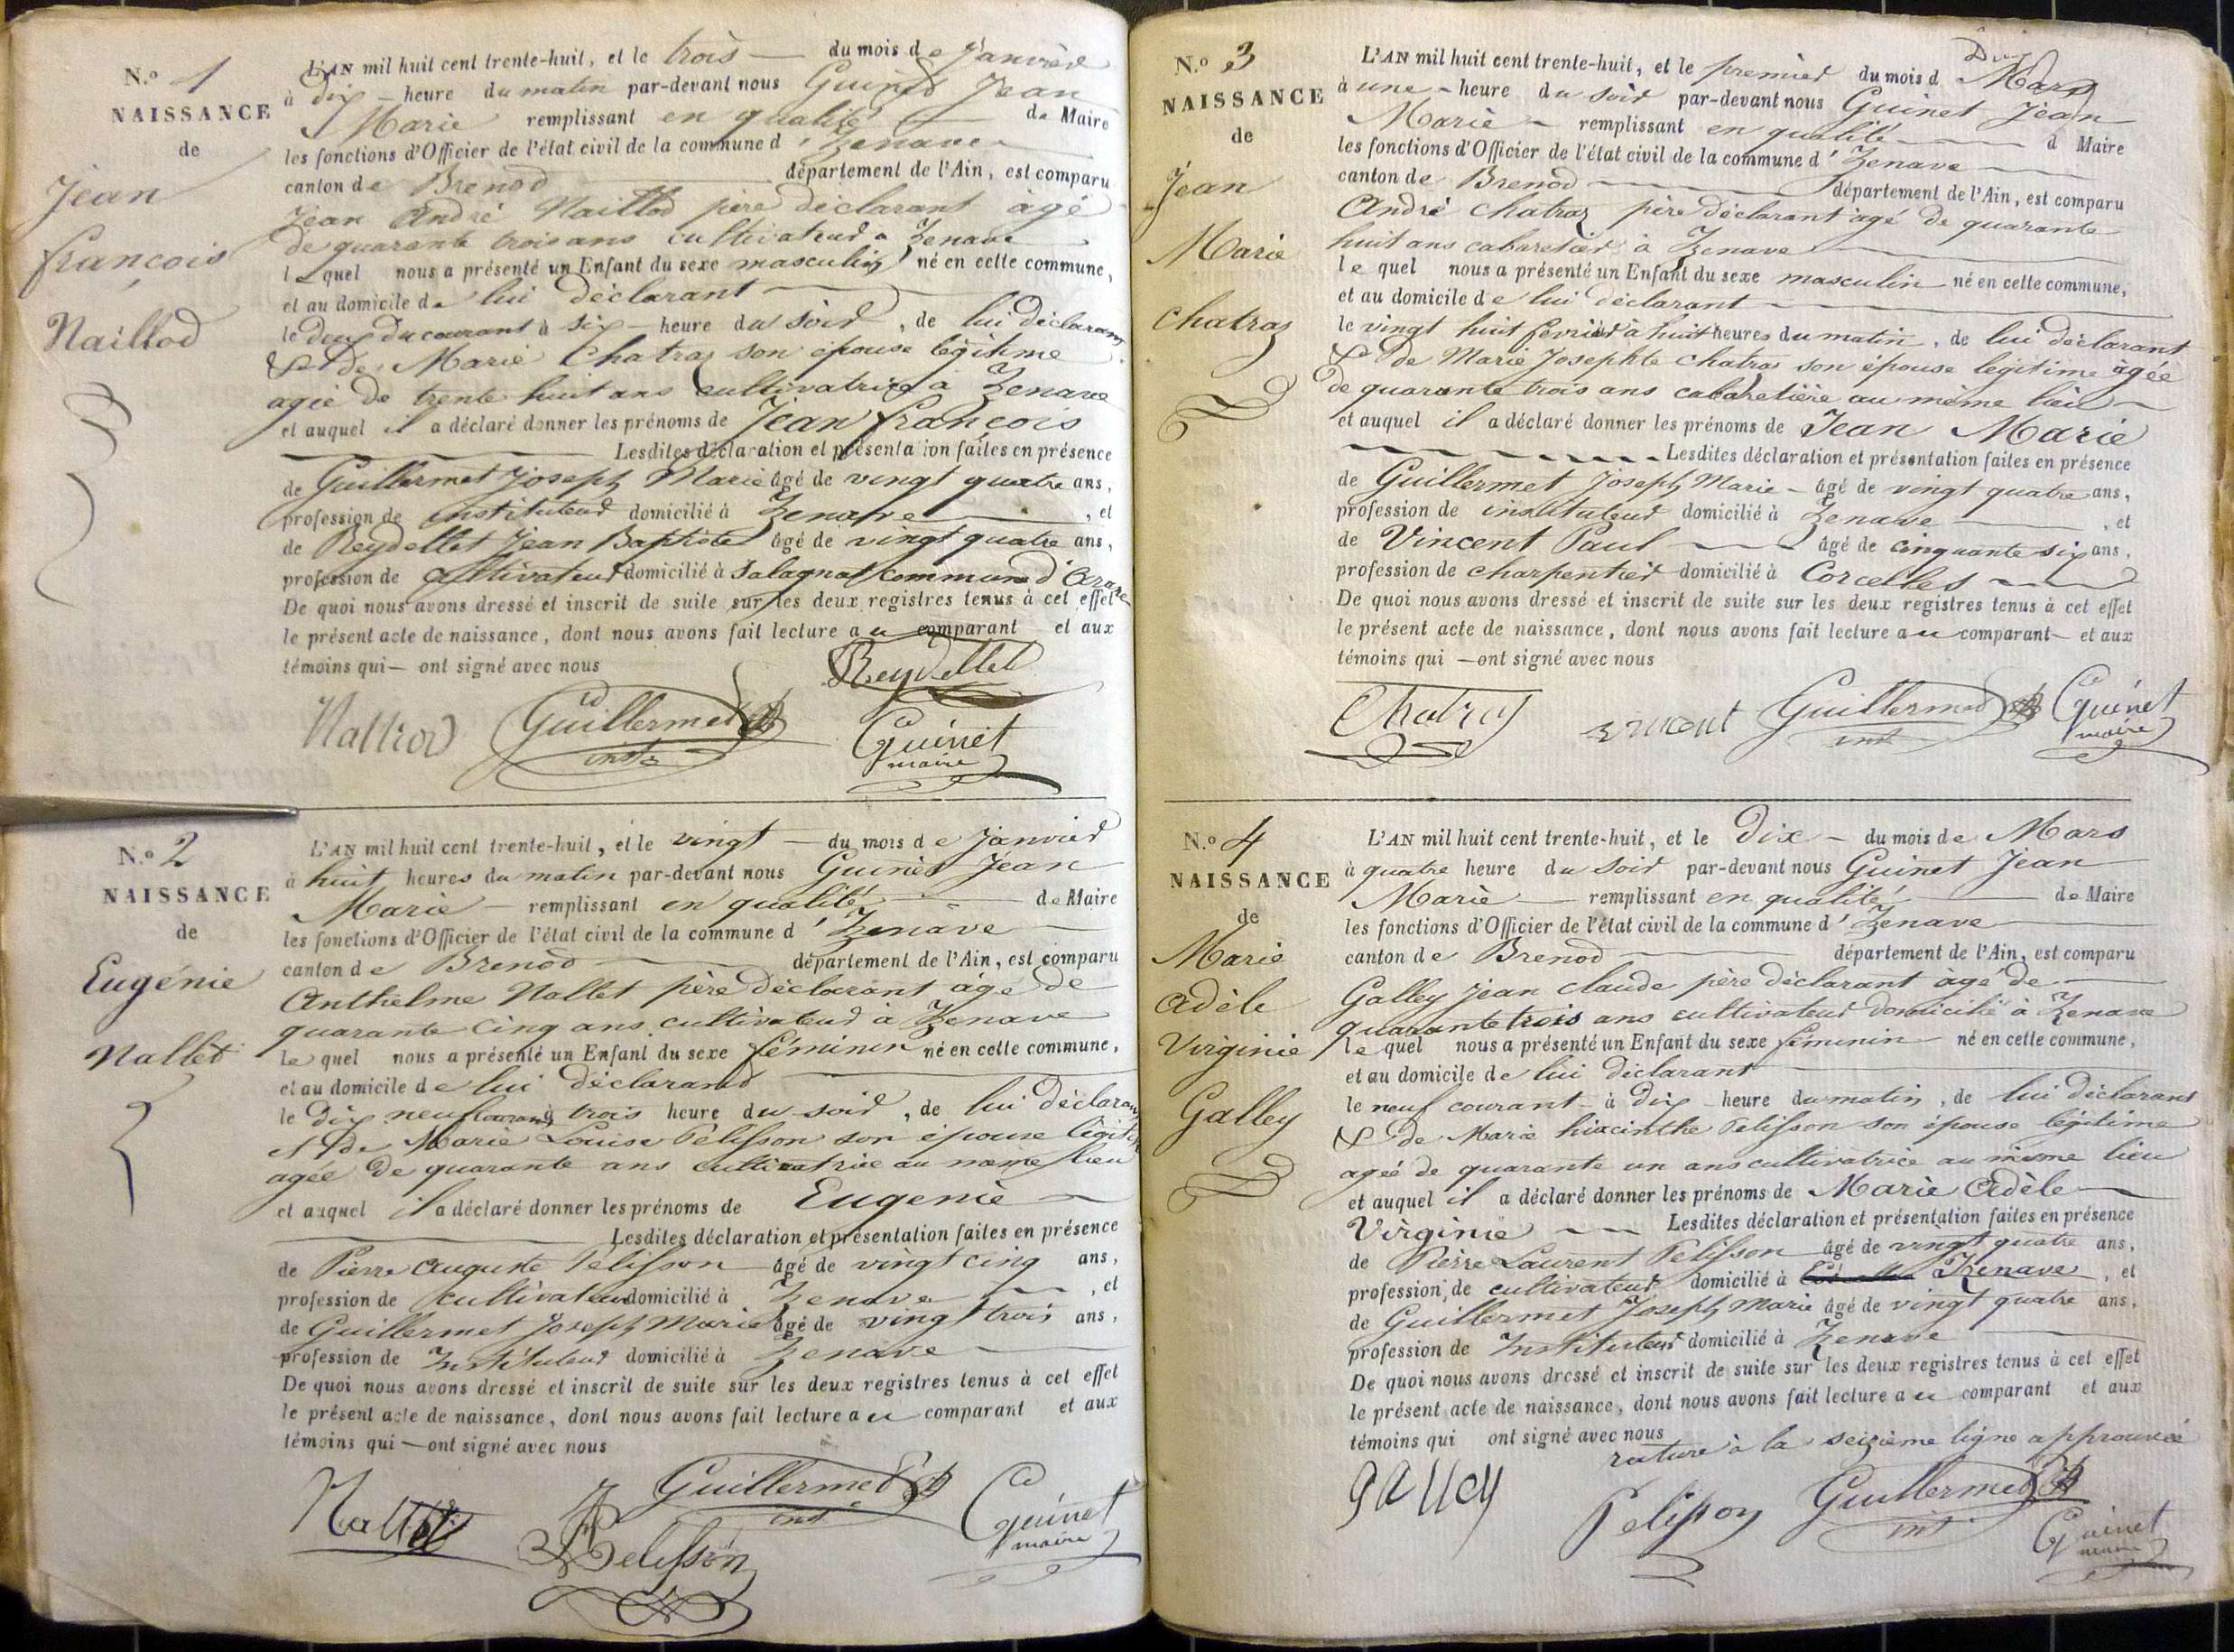 N.º 1
NAISSANCE
de
Jean
françois
Naillod
L'AN mil huit cent trente-huit, et le trois du mois de Janvier
à dix heure du matin par-devant nous Guinet Jean
Marie remplissant en qualité de Maire
les fonctions d'Officier de l'état civil de la commune d' Izenave
canton de Brenod département de l'Ain, est comparu
Jean André Naillod père déclarant âgé
de quarante trois ans cultivateur a Izenave
lequel nous a présenté un Enfant du sexe masculin né en cette commune,
et au domicile de lui déclarant
le deux du courant à six heure du soir, de lui déclarant
& de Marie Chatraz son épouse légitime
agée de trente huit ans cultivatrice à Izenave
et auquel il a déclaré donner les prénoms de Jean françois
Lesdites déclaration et présentation faites en présence
de Guillermet Joseph Marie âgé de vingt quatre ans,
profession de instituteur domicilié à Izenave, et
de Reydellet Jean Baptiste âgé de vingt quatre ans,
profession de cultivateur domicilié à Salagnat commune d'Aranc
De quoi nous avons dressé et inscrit de suite sur les deux registres tenus à cet effet
le présent acte de naissance, dont nous avons fait lecture au comparant et aux
témoins qui ont signé avec nous
Reydellet
Guillermet inst
Guinet
maire
N.º 2
NAISSANCE
de
Eugénie
Nallet
L'AN mil huit cent trente-huit, et le vingt du mois de Janvier
à huit heures du matin par-devant nous Guinet Jean
Marie remplissant en qualité de Maire
les fonctions d'Officier de l'état civil de la commune d' Izenave
canton de Brenod département de l'Ain, est comparu
Anthelme Nallet père déclarant âgé de
quarante cinq ans cultivateur a Izenave
lequel nous a présenté un Enfant du sexe féminin né en cette commune,
et au domicile de lui déclarant
le dix neuf courant à trois heure du soir, de lui déclarant
et de Marie Louise Pelisson son épouse légitime
agée de quarante ans cultivatrice au même lieu
et auquel il a déclaré donner les prénoms de Eugenie
Lesdites déclaration et présentation faites en présence
de Pierre Auguste Pelisson âgé de vingt cinq ans,
profession de cultivateur domicilié à Izenave, et
de Guillermet Joseph Marie âgé de vingt trois ans,
profession de Instituteur domicilié à Izenave
De quoi nous avons dressé et inscrit de suite sur les deux registres tenus à cet effet
le présent acte de naissance, dont nous avons fait lecture au comparant et aux
témoins qui ont signé avec nous
Nallet Guillermet inst
Pelisson
Guinet
maire
N.º 3
NAISSANCE
de
Jean
Marie
Chatraz
L'AN mil huit cent trente-huit, et le premier du mois d Mars
à une heure du soir par-devant nous Guinet Jean
Marie remplissant en qualité d Maire
les fonctions d'Officier de l'état civil de la commune d' Izenave
canton de Brenod département de l'Ain, est comparu
André Chatraz père déclarant agé de quarante
huit ans cabaretier à Izenave
lequel nous a présenté un Enfant du sexe masculin né en cette commune,
et au domicile de lui déclarant
le vingt huit février à huit heures du matin, de lui déclarant
& de Marie Josephte Chatraz son épouse légitime âgée
de quarante trois ans cabaretière au même lieu
et auquel il a déclaré donner les prénoms de Jean Marie
Lesdites déclaration et présentation faites en présence
de Guillermet Joseph Marie âgé de vingt quatre ans,
profession de instituteur domicilié à Izenave, et
de Vincent Paul âgé de cinquante six ans,
profession de charpentier domicilié à Corcelles
De quoi nous avons dressé et inscrit de suite sur les deux registres tenus à cet effet
le présent acte de naissance, dont nous avons fait lecture au comparant et aux
témoins qui ont signé avec nous
Chatraz vincent Guillermet inst Guinet
maire
N.º 4
NAISSANCE
de
Marie
Adèle
Virginie
Galley
L'AN mil huit cent trente-huit, et le Dix du mois de Mars
à quatre heure du soir par-devant nous Guinet Jean
Marie remplissant en qualité de Maire
les fonctions d'Officier de l'état civil de la commune d' Izenave
canton de Brenod département de l'Ain, est comparu
Galley Jean claude père déclarant âgé de
quarante trois ans cultivateur domicilié à Izenave
lequel nous a présenté un Enfant du sexe féminin né en cette commune,
et au domicile de lui déclarant
le neuf courant à dix heure du matin, de lui déclarant
& de Marie hiacinthe Pelisson son épouse légitime
agée de quarante un ans cultivatrice au même lieu
et auquel il a déclaré donner les prénoms de Marie Adèle
Virginie Lesdites déclaration et présentation faites en présence
de Pierre Laurent Pelisson âgé de vingt quatre ans,
profession de cultivateur domicilié à Izenave, et
de Guillermet Joseph Marie âgé de vingt quatre ans,
profession de Instituteur domicilié à Izenave
De quoi nous avons dressé et inscrit de suite sur les deux registres tenus à cet effet
le présent acte de naissance, dont nous avons fait lecture au comparant et aux
témoins qui ont signé avec nous
rature à la seizième ligne approuvée
galley Pelisson Guillermet inst
Guinet
maire